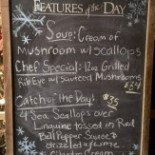 FEATURES of the DAY
Soup: Cream of
Mushroom w/ Scallops
Chef Special: 12oz Grilled
Rib Eye w/ Sauteed Mushrooms
$24
Catch of the Day! $25
4 Sea Scallops over
Linguine tossed in Red
Bell Pepper Sauce &
drizzled w/ Lime
Cream